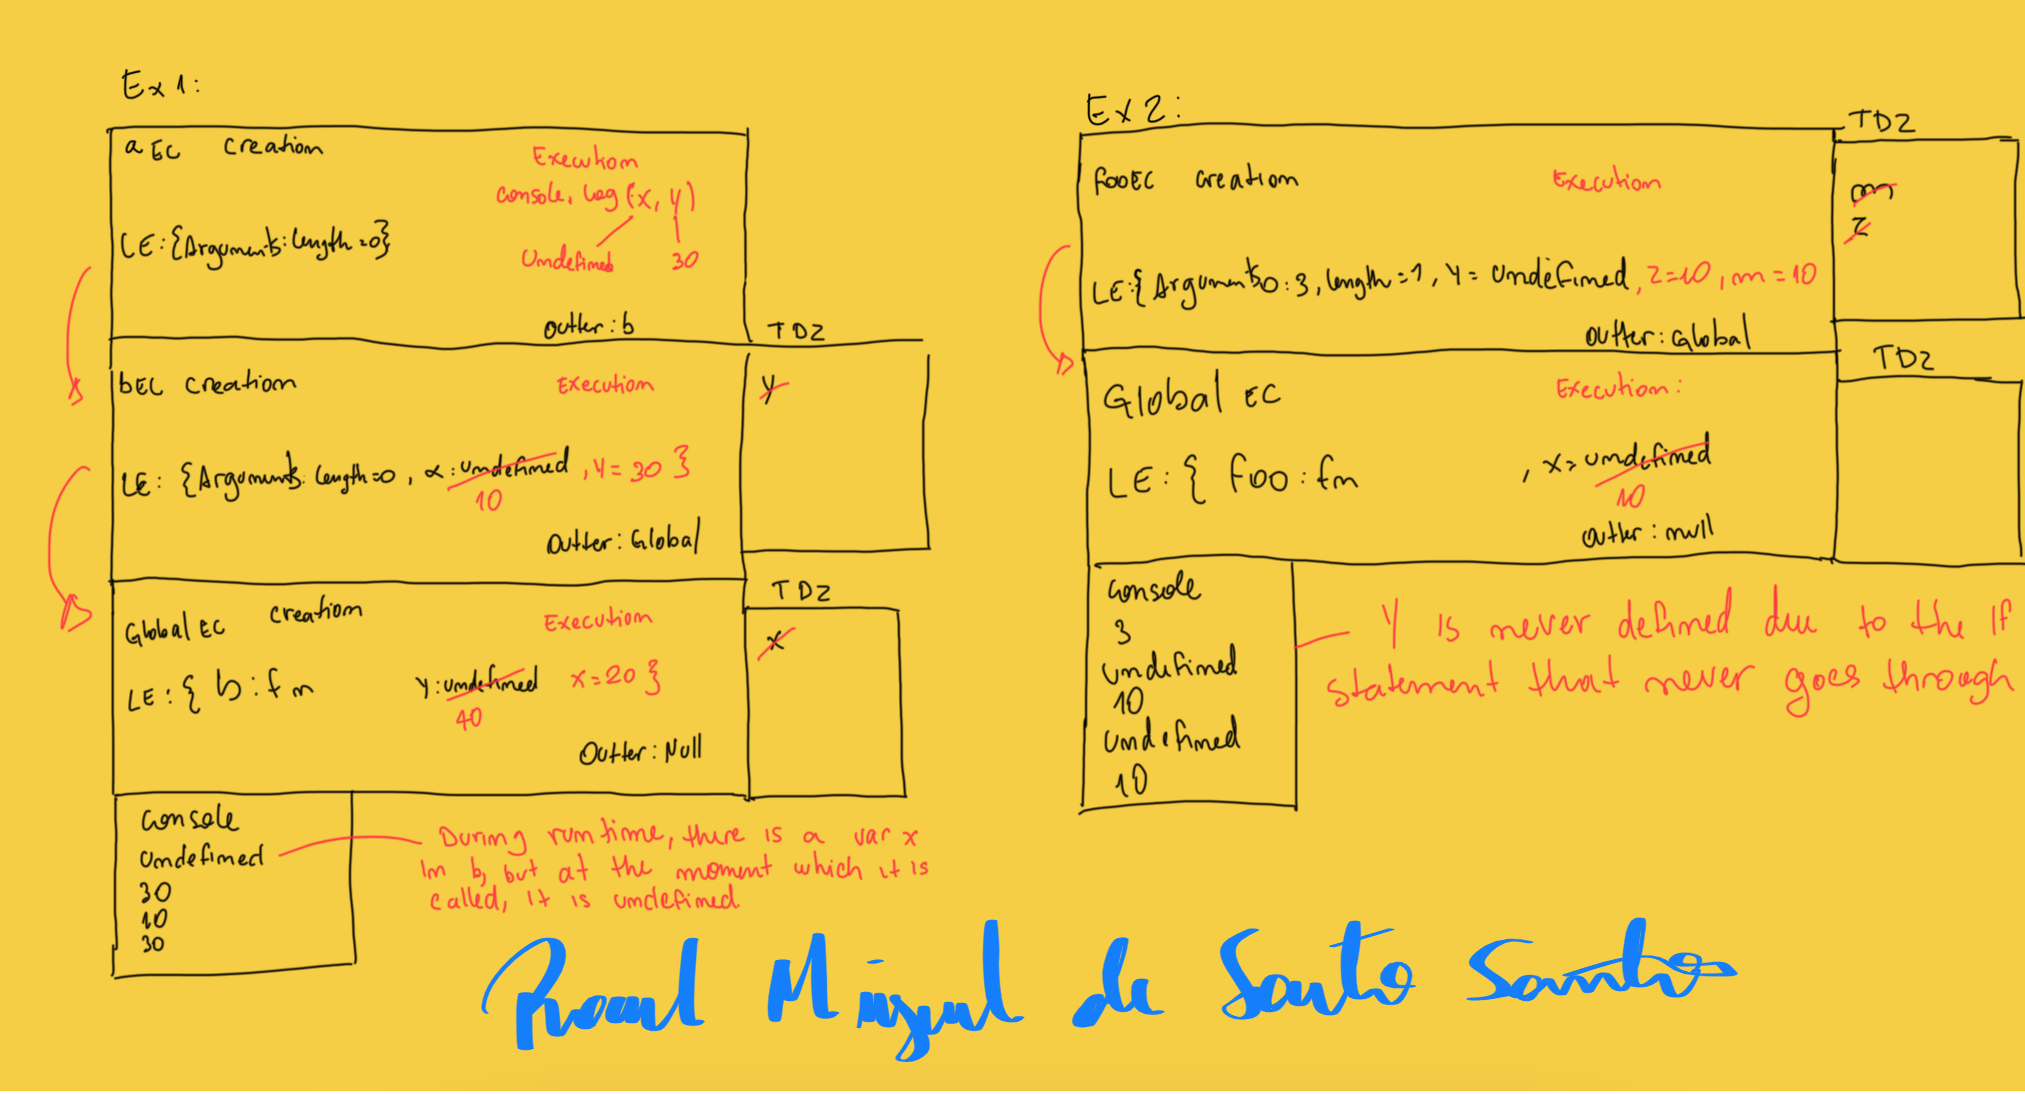 Ex 1:
a EC creation
Execution
console.log (x, y)
LE: {Arguments: length = 0}
Undefined 30
Outter: b
TDZ
bEC creation
Execution
y
LE: {Arguments: length=0, x: undefined, y = 30 }
10
Outter: Global
TDZ
Global EC creation
Execution
x
LE: { b: fn y: undefined x=20 }
40
Outter: Null
Console
Undefined
30
10
30
During runtime, there is a var x
In b, but at the moment which it is
called, it is undefined.
Ex 2:
TDZ
fooEC creation
Execution
m
z
LE:{ Arguments 0: 3, length = 1, y = undefined, z=10, m = 10
Outter: Global
TDZ
Global EC
Execution:
LE: { foo: fn , x= undefined
10
Outter: null
Console
3
undefined
10
undefined
10
Y is never defined due to the If
statement that never goes through
Miguel de Souto